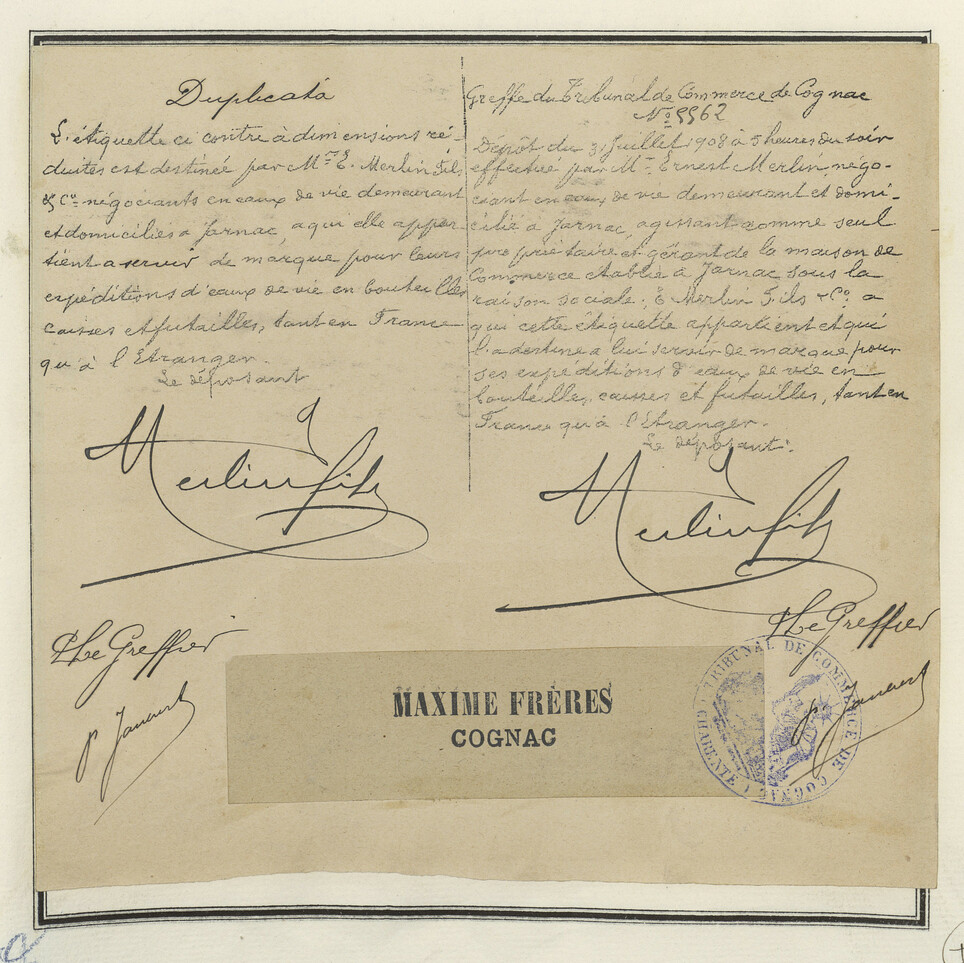 Duplicata
L'étiquette ci contre à dimensions ré-
duites est destiné par Mr. E. Merlin Fils
& Co. négociants en eaux de vie demeurant
et domiciliés à Jarnac, a qui elle appar-
tient a servir de marque pour leurs
expéditions d'eaux de vie en bouteilles
caisses et futailles, tant en France
qu'à l'Etranger.
Le déposant
Merlin fils
Le Greffier
Greffe du Tribunal de Commerce de Cognac
No 5562
Dépôt du 31 Juillet 1908 à 5 heures du soir
effectué par Mr Ernest Merlin négo-
ciant en eaux de vie demeurant et domi-
cilié à Jarnac, agissant comme seul
propriétaire et gérant de la maison de
Commerce etablie à Jarnac sous la
raison sociale. E Merlin Fils & Co. a
qui cette étiquette appartient et qui
l'a destine a lui servir de marque pour
ses expéditions d'eaux de vie en
bouteilles, caisses et futailles, tant en
France qu'à l'Etranger.
Le déposant:
Merlin fils
Le Greffier
MAXIME FRÈRES
COGNAC
TRIBUNAL DE COMMERCE DE COGNAC (CHARENTE)